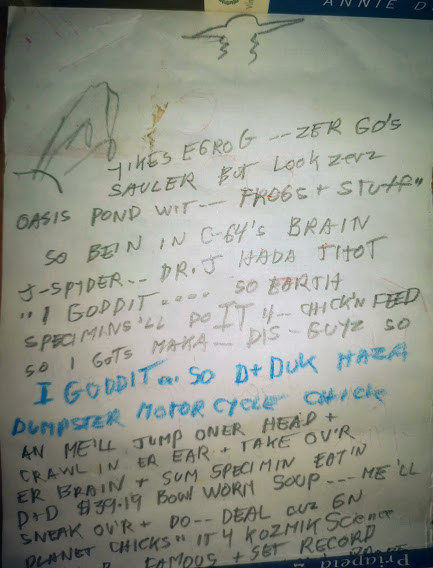 ANNIE D
YIKES EGROG -- ZER GO'S
SAULER BUT LOOK ZERZ
OASIS POND WIT -- FROGS + STUFF"
SO BEIN IN C-64'S BRAIN
J-SPIDER -- DR. J HADA THOT
"I GODDIT .... SO EARTH
SPECIMINS'LL DO IT 4 -- CHICK'N FEED
SO I GOTS MAKA -- DIS-GUYZ SO
I GODDIT .. SO D+DUK HAZA
DUMPSTER MOTORCYCLE CHICK
AN ME'LL JUMP ONER HEAD +
CRAWL IN ER EAR + TAKE OV'R
ER BRAIN + SUM SPECIMIN EAT'N
D+D $39.19 BOWL WORM SOUP --- ME'LL
SNEAK OV'R + DO -- DEAL CUZ EN
PLANET CHICKS" IT 4 KOZMIK SCIENCE
FAMOUS + SET RECORD
Priapeia